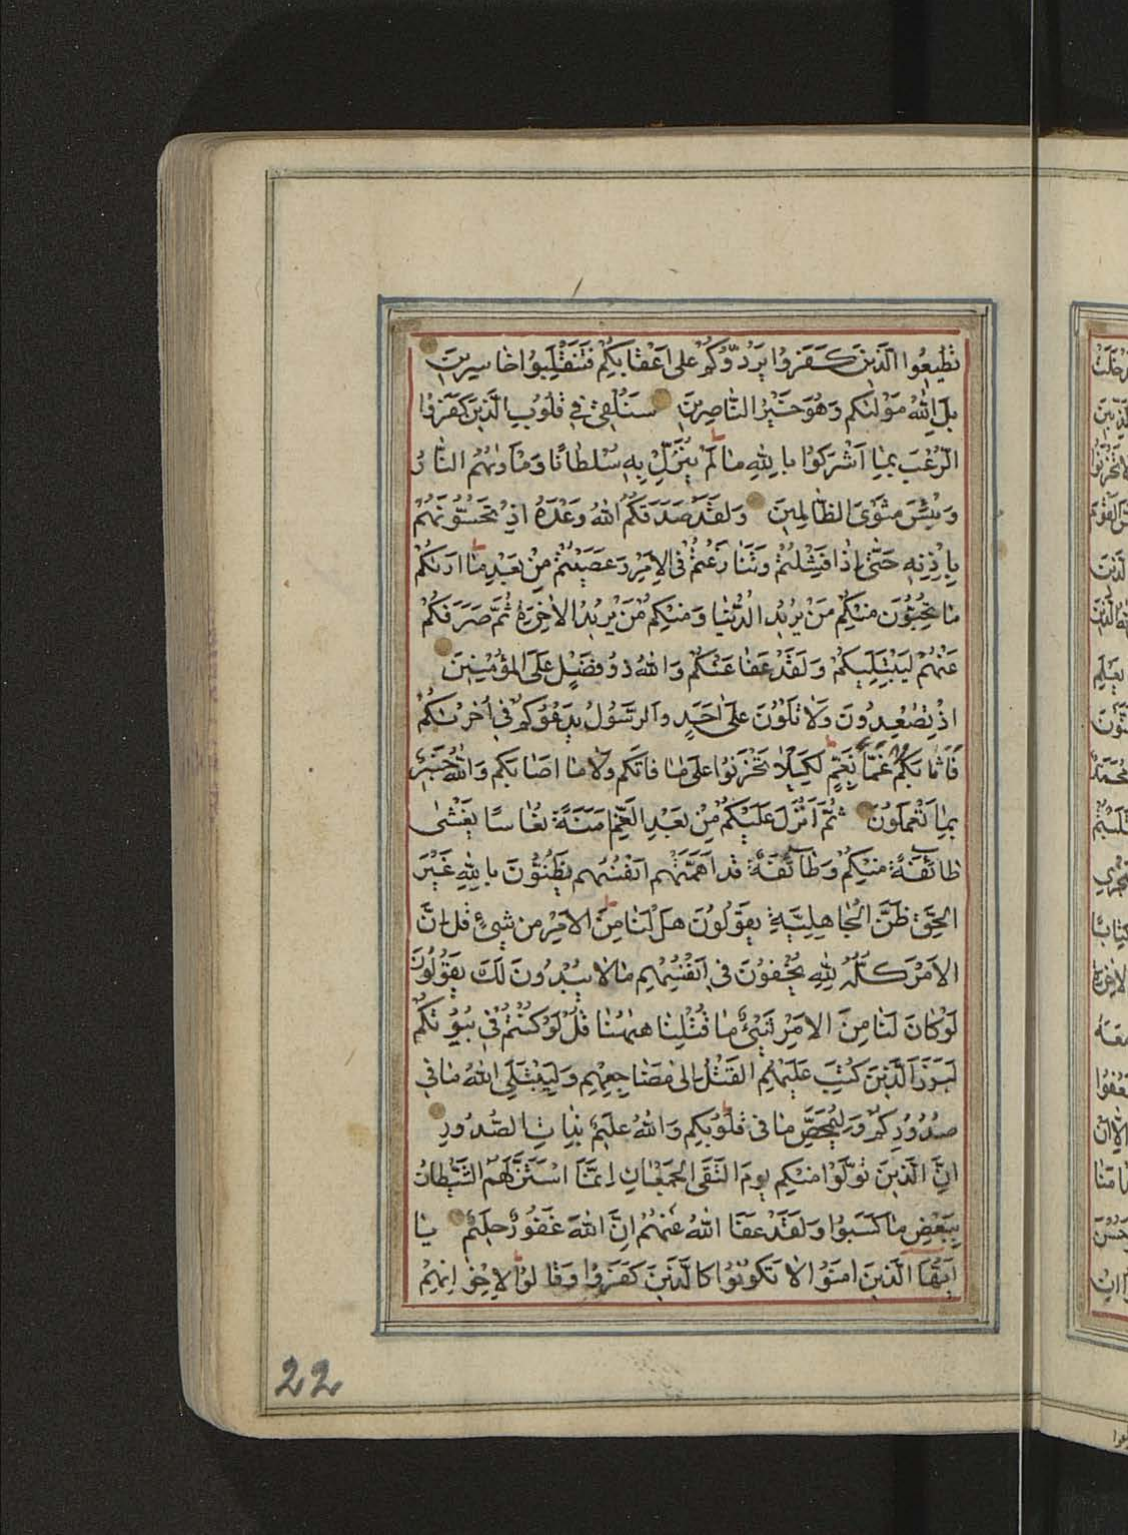 تُطِيعُوا الَّذِينَ كَفَرُوا يَرُدُّوكُمْ عَلَى اَعْقَابِكُمْ فَتَنْقَلِبُوا خَاسِرِينَ
بَلِ اللهُ مَوْلٰيكُم وَهُوَ خَيْرُ النَّاصِرِينَ سَنُلْقِي فِي قُلُوبِ الَّذِينَ كَفَرُوا
الرُّعْبَ بِمَا اَشْرَكُوا بِاللهِ مَا لَمْ يُنَزِّلْ بِهِ سُلْطَانًا وَمَأْوٰيهُمُ النَّارُ
وَبِئْسَ مَثْوَى الظَّالِمِينَ وَلَقَدْ صَدَقَكُمُ اللهُ وَعْدَهُ اِذْ تَحُسُّونَهُمْ
بِاِذْنِهِ حَتَّى اِذَا فَشِلْتُمْ وَتَنَازَعْتُمْ فِى الاَمْرِ وَعَصَيْتُمْ مِنْ بَعْدِ مَا اَرٰيكُمْ
مَا تُحِبُّونَ مِنْكُمْ مَنْ يُرِيدُ الدُّنْيَا وَمِنْكُم مَنْ يُرِيدُ الاٰخِرَةَ ثُمَّ صَرَفَكُمْ
عَنْهُمْ لِيَبْتَلِيَكُمْ وَلَقَدْ عَفَا عَنْكُمْ وَاللهُ ذُو فَضْلٍ عَلَى المُؤْمِنِينَ
اِذْ تُصْعِدُونَ وَلَا تَلْوُنَ عَلَى اَحَدٍ وَالرَّسُولُ يَدْعُوكُمْ فِي اُخْرٰيكُمْ
فَاَثَابَكُمْ غَمًّا بِغَمٍّ لِكَيْلَا تَحْزَنُوا عَلَى مَا فَاتَكُم وَلَا مَا اَصَابَكُم وَاللهُ خَبِيرٌ
بِمَا تَعْمَلُونَ ثُمَّ اَنْزَلَ عَلَيْكُمْ مِنْ بَعْدِ الْغَمِّ اَمَنَةً نُعَاسًا يَغْشٰى
طَائِفَةً مِنْكُمْ وَطَائِفَةٌ قَد اَهَمَّتْهُم اَنْفُسُهُم يَظُنُّونَ بِاللهِ غَيْرَ
الْحَقِّ ظَنَّ الْجَاهِلِيَّةِ يَقُولُونَ هَلْ لَنَا مِنَ الاَمْرِ مِن شَيْءٍ قُل اِنَّ
الاَمْرَ كُلَّهُ لِلهِ يُخْفُونَ فِى اَنْفُسِهِم مَا لَا يُبْدُونَ لَكَ يَقُولُونَ
لَوْ كَانَ لَنَا مِنَ الاَمْرِ شَيْءٌ مَا قُتِلْنَا هٰهُنَا قُلْ لَوْ كُنْتُمْ فِى بُيُوتِكُمْ
لَبَرَزَ الَّذِينَ كُتِبَ عَلَيْهِمُ القَتْلُ اِلَى مَضَاجِعِهِم وَلِيَبْتَلِيَ اللهُ مَا فِى
صُدُورِكُمْ وَلِيُمَحِّصَ مَا فِى قُلُوبِكُم وَاللهُ عَلِيمٌ بِذَاتِ الصُّدُورِ
اِنَّ الَّذِينَ تَوَلَّوْا مِنْكُم يَومَ التَقَى الجَمْعَانِ اِنَّمَا اسْتَزَلَّهُمُ الشَّيْطَانُ
بِبَعْضِ مَا كَسَبُوا وَلَقَدْ عَفَا اللهُ عَنْهُمْ اِنَّ اللهَ غَفُورٌ حَلِيمٌ يَا
اَيُّهَا الَّذِينَ اٰمَنُوا لَا تَكُونُوا كَالَّذِينَ كَفَرُوا وَقَالُوا لِاِخْوَانِهِمْ
22